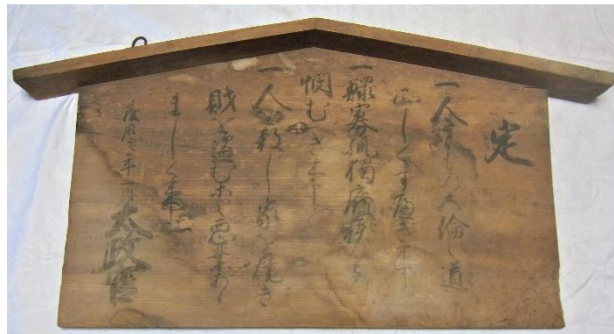 定
一人たるもの五倫之道を
正しくすへき事
一鰥寡孤独癈疾のものを
憫むへき事
一人を殺し家を焼き
財を盗む等之悪業ある
ましく事
慶應四年三月 太政官